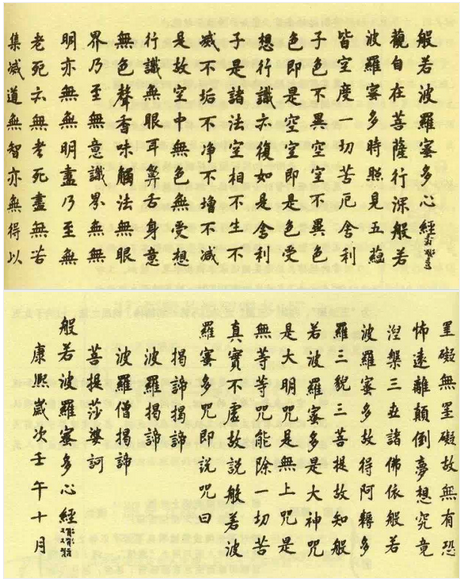 般若波羅蜜多心經
觀自在菩薩行深般若
波羅蜜多時照見五蘊
皆空度一切苦厄舍利
子色不異空空不異色
色即是空空即是色受
想行識亦復如是舍利
子是諸法空相不生不
滅不垢不淨不增不減
是故空中無色無受想
行識無眼耳鼻舌身意
無色聲香味觸法無眼
界乃至無意識界無無
明亦無無明盡乃至無
老死亦無老死盡無苦
集滅道無智亦無得以
罣礙無罣礙故無有恐
怖遠離顛倒夢想究竟
涅槃三世諸佛依般若
波羅蜜多故得阿耨多
羅三藐三菩提故知般
若波羅蜜多是大神咒
是大明咒是無上咒是
無等等咒能除一切苦
真實不虛故說般若波
羅蜜多咒即說咒曰
揭諦揭諦
波羅揭諦
波羅僧揭諦
菩提莎婆訶
般若波羅蜜多心經
康熙歲次壬午十月